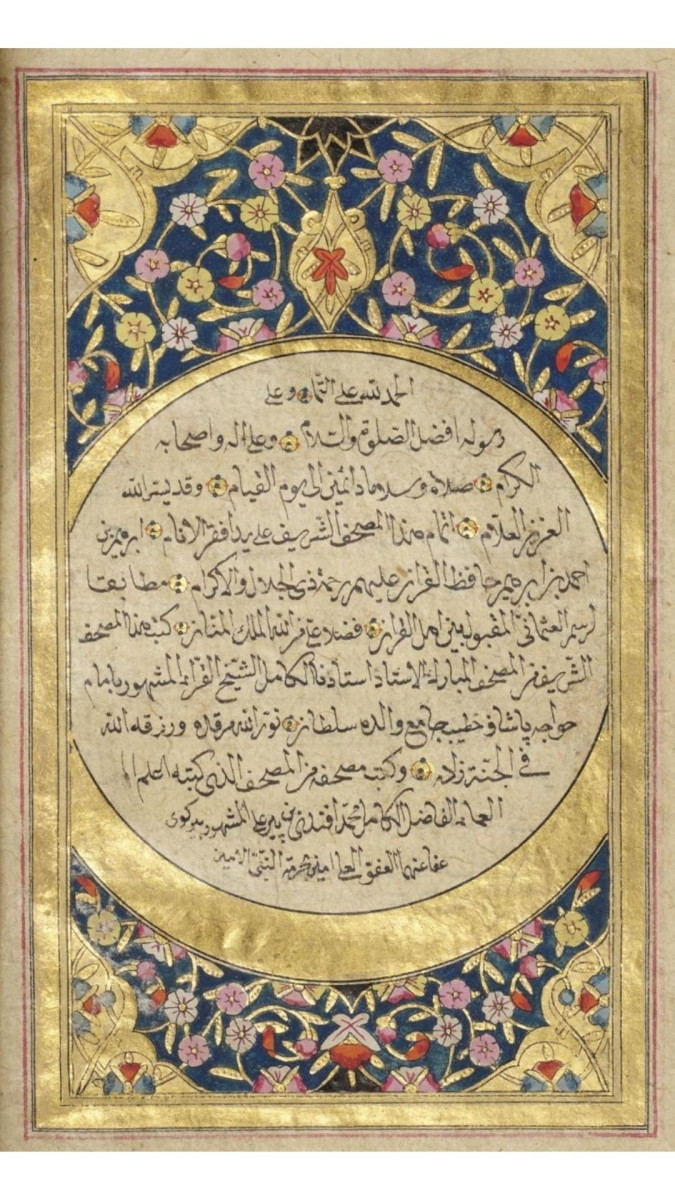 الحمد لله على التمام وعلى
رسوله افضل الصلوة والسلام وعلى اله واصحابه
الكرام صلاة وسلاما دائمين الى يوم القيام وقد يسر الله
العزيز العلام اتمام هذا المصحف الشريف على يد افقر الانام ابرهيم بن
احمد بن ابرهيم حافظ القرآن عليهم رحمة ذي الجلال والاكرام مطابقا
لرسم العثماني المقبول بين اهل القرآن فضلا من الله الملك المنان كتب هذا المصحف
الشريف من المصحف المبارك الاستاذ استاذنا الكامل الشيخ القرا المشهور بامام
خواجه پاشا وخطيب جامع والده سلطان نور الله مرقده ورزقه الله
في الجنة زاده وكتب مصحفه من المصحف الذي كتبه اعلم
العلماء الفاضل الكامل محمد افندي بن پير علي المشهور ببركوي
عفا عنهما العفو العلي امين بحرمة النبي الامين